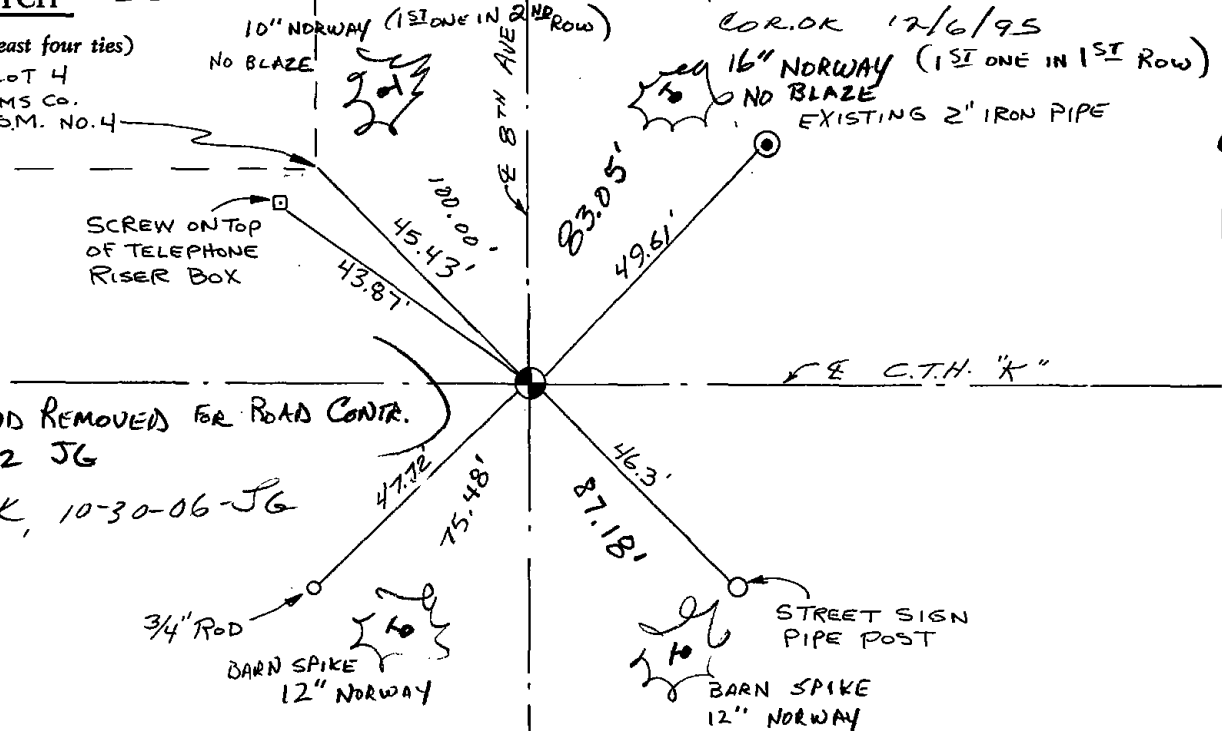 10" NORWAY (1ST ONE IN 2ND ROW)
NO BLAZE
COR. OK 12/6/95
16" NORWAY (1ST ONE IN 1ST ROW)
NO BLAZE
EXISTING 2" IRON PIPE
east four ties)
LOT 4
MS CO.
S.M. NO. 4
℄ 8TH AVE
SCREW ON TOP
OF TELEPHONE
RISER BOX
100.00'
45.43'
43.87'
83.05'
49.61'
℄ C.T.H. "K"
REMOVED FOR ROAD CONTR.
2 JG
K, 10-30-06-JG
47.72'
75.48'
46.3'
87.18'
3/4" ROD
BARN SPIKE
12" NORWAY
STREET SIGN
PIPE POST
BARN SPIKE
12" NORWAY